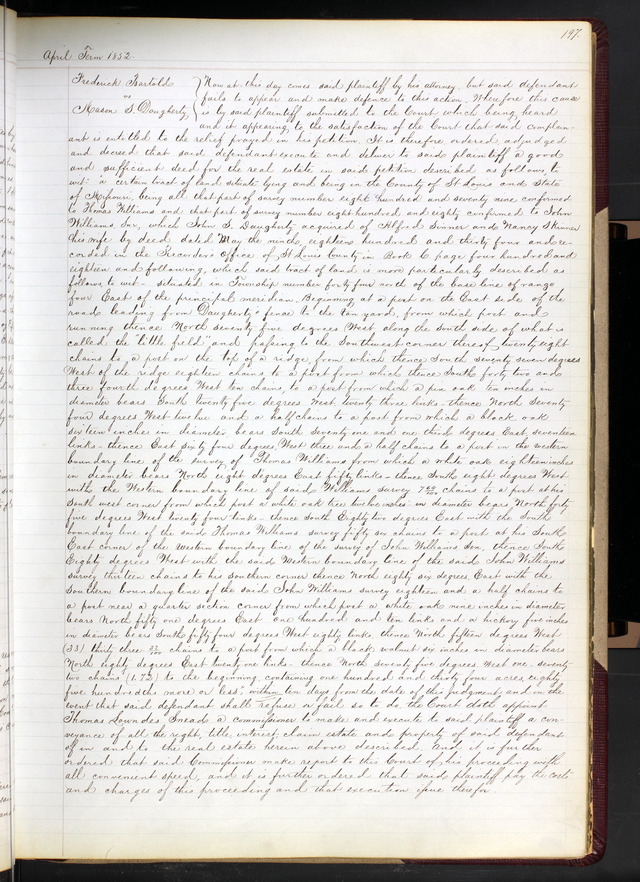 197.
April Term 1852.
Frederick Bartold
vs
Mason S. Daugherty
Now at this day comes said plaintiff by his attorney, but said defendant
fails to appear and make defence to this action. Wherefore this cause
is by said plaintiff submitted to the Court which being heard
and it appearing to the satisfaction of the Court that said complain-
ant is entitled to the relief prayed in his petition. It is therefore ordered adjudged
and decreed that said defendant execute and deliver to said plaintiff a good
and sufficient deed for the real estate in said petition described as follows, to
wit: a certain tract of land situate lying and being in the County of St Louis and State
of Missouri, being all that part of survey number eight hundred and seventy nine confirmed
to Thomas Williams and that part of survey number eight hundred and eighty confirmed to John
Williams Snr, which John S. Daugherty acquired of Alfred Skinner and Nancy Skinner
his wife by deed dated May the ninth eighteen hundred and thirty four and re-
corded in the Recorders office of St Louis County in Book C page four hundred and
eighteen and following, which said tract of land is more particularly described as
follows to wit- situated in Township number forty four north of the base line of range
four East of the principal meridian. Beginning at a post on the East side of the
road leading from Daugherty's fence to the tan yard, from which post and
running thence North seventy five degrees West along the south side of what is
called the "little field" and passing to the Southwest corner thereof twenty eight
chains to a post on the top of a ridge, from which thence South seventy seven degrees
West of the ridge eighteen chains to a post from which thence South forty two and
three fourth degrees West ten chains, to a post from which a pin oak ten inches in
diameter bears South twenty five degrees West twenty three links - thence North Seventy
four degrees West twelve and a half chains to a post from which a black oak
sixteen inches in diameter bears South seventy one and one third degrees East, seventeen
links - thence East sixty four degrees West three and a half chains to a post in the western
boundary line of the survey of Thomas Williams from which a white oak eighteen inches
in diameter bears North eight degrees East fifty links - thence South eight degrees West
with the Western boundary line of said Williams survey chains to a post at his
South west corner from which post a white oak tree twelve inches in diameter bears North forty
five degrees West twenty four links - thence South Eighty two degrees East with the South
boundary line of the said Thomas Williams survey fifty six chains to a post at his South
East corner of the western boundary line of the survey of John Williams Sen, thence South
Eighty degrees West with the said Western boundary line of the said John Williams
survey thirteen chains to his Southern corner thence North eighty six degrees East with the
Southern boundary line of the said John Williams survey eighteen and a half chains to
a post near a quarter section corner from which post a white oak nine inches in diameter
bears North fifty one degrees East one hundred and ten links and a hickory five inches
in diameter bears South fifty four degrees West eighty links, thence North fifteen degrees West
(33) thirty three chains to a post from which a black walnut six inches in diameter bears
North eighty degrees East twenty one links - thence North seventy five degrees West one seventy
two chains (1.72) to the beginning, containing one hundred and thirty four acres eighty
five hundredths more or less, within ten days from the date of this judgment, and in the
event that said defendant shall refuse or fail so to do, the Court doth appoint
Thomas Lowndes Snead a commissioner to make and execute to said plaintiff a con-
veyance of all the right, title, interest, claim estate and property of said defendant
of in and to the real estate herein above described. And it is further
ordered that said Commissioner make report to this Court of his proceeding with
all convenient speed, and it is further ordered that said plaintiff pay the costs
and charges of this proceeding and that execution issue therefor.